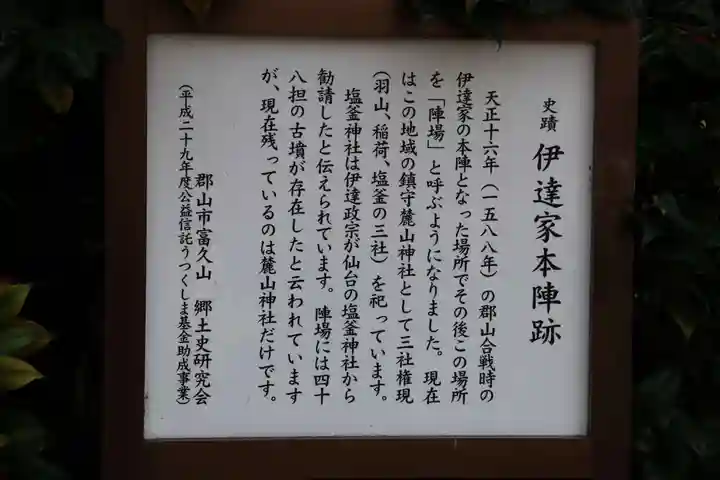 史蹟 伊達家本陣跡
天正十六年（一五八八年）の郡山合戦時の
伊達家の本陣となった場所でその後この場所
を「陣場」と呼ぶようになりました。現在
はこの地域の鎮守麓山神社として三社権現
（羽山、稲荷、塩釜の三社）を祀っています。
塩釜神社は伊達政宗が仙台の塩釜神社から
勧請したと伝えられています。 陣場には四十
八担の古墳が存在したと云われています
が、現在残っているのは麓山神社だけです。
郡山市富久山 郷土史研究会
（平成二十九年度公益信託うつくしま基金助成事業）